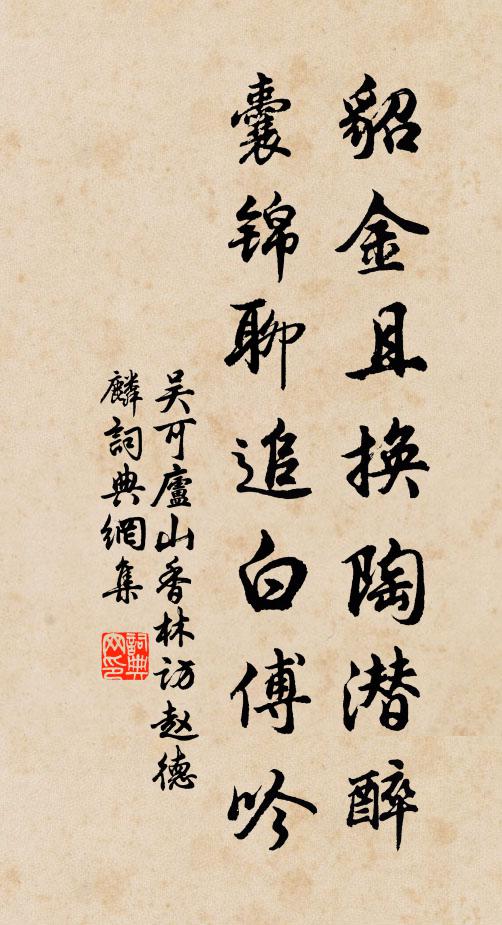 貂金且換陶潛醉
囊錦聊追白傅吟
吴可廬山香林访赵德
麟詞典網集
詞典网印